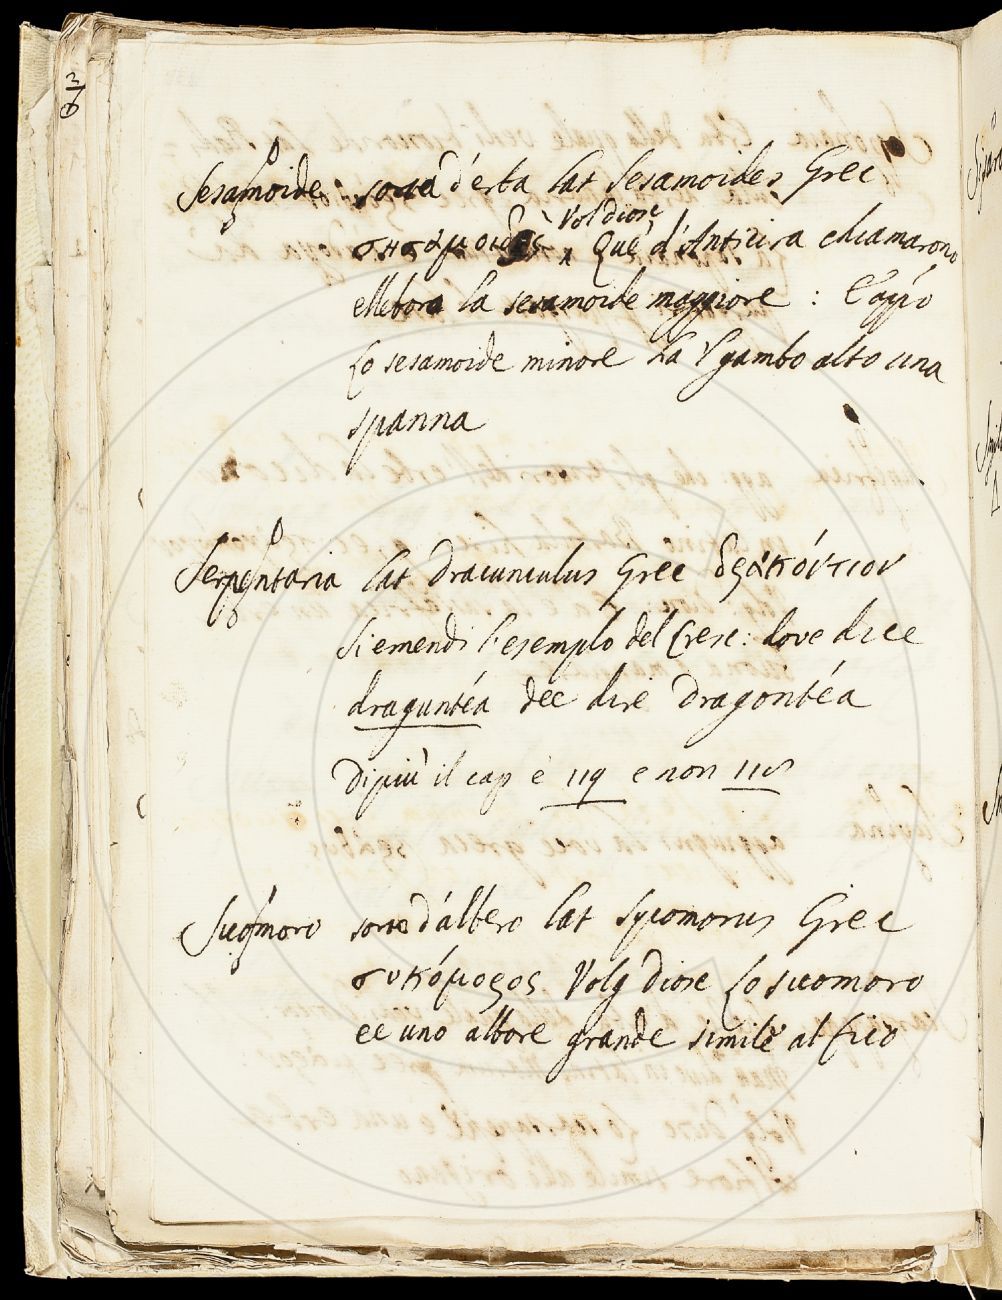 Sesamoide sorta d'erba Lat Sesamoides Grec
σησαμοιδὲς Vol diosc Que' d'Anticira chiamarono
ellebora la sesamoide maggiore : E appo
Lo sesamoide minore ha 'l gambo alto una
spanna
Serpentaria Lat Dracunculus Grec δρακόντιον
Si emendi l'esemplo del Cresc: dove dice
draguntéa dee dire Dragontéa
Di più il cap è 119 e non 118
Sicomoro sorta d'albero Lat Sycomorus Grec
συκόμορος Volg Diosc Lo sicomoro
ee uno albore grande simile al fico